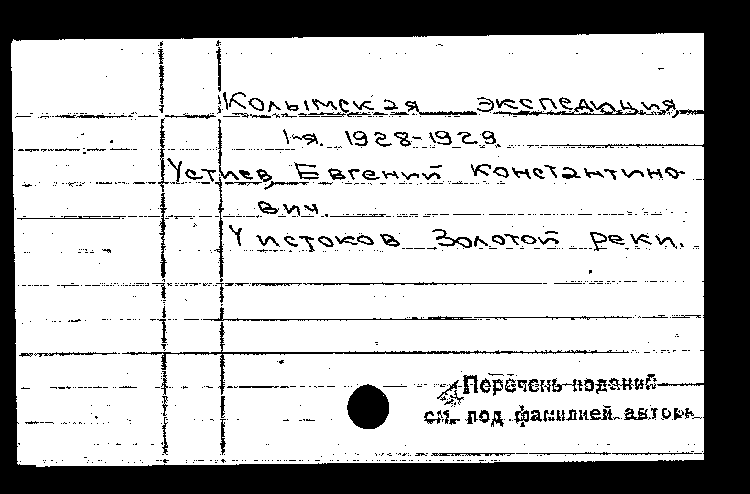 Колымская экспедиция,
1-я. 1928-1929.
Устиев, Евгений Константино-
вич.
У истоков Золотой реки.
Перечень изданий
см. под фамилией автора